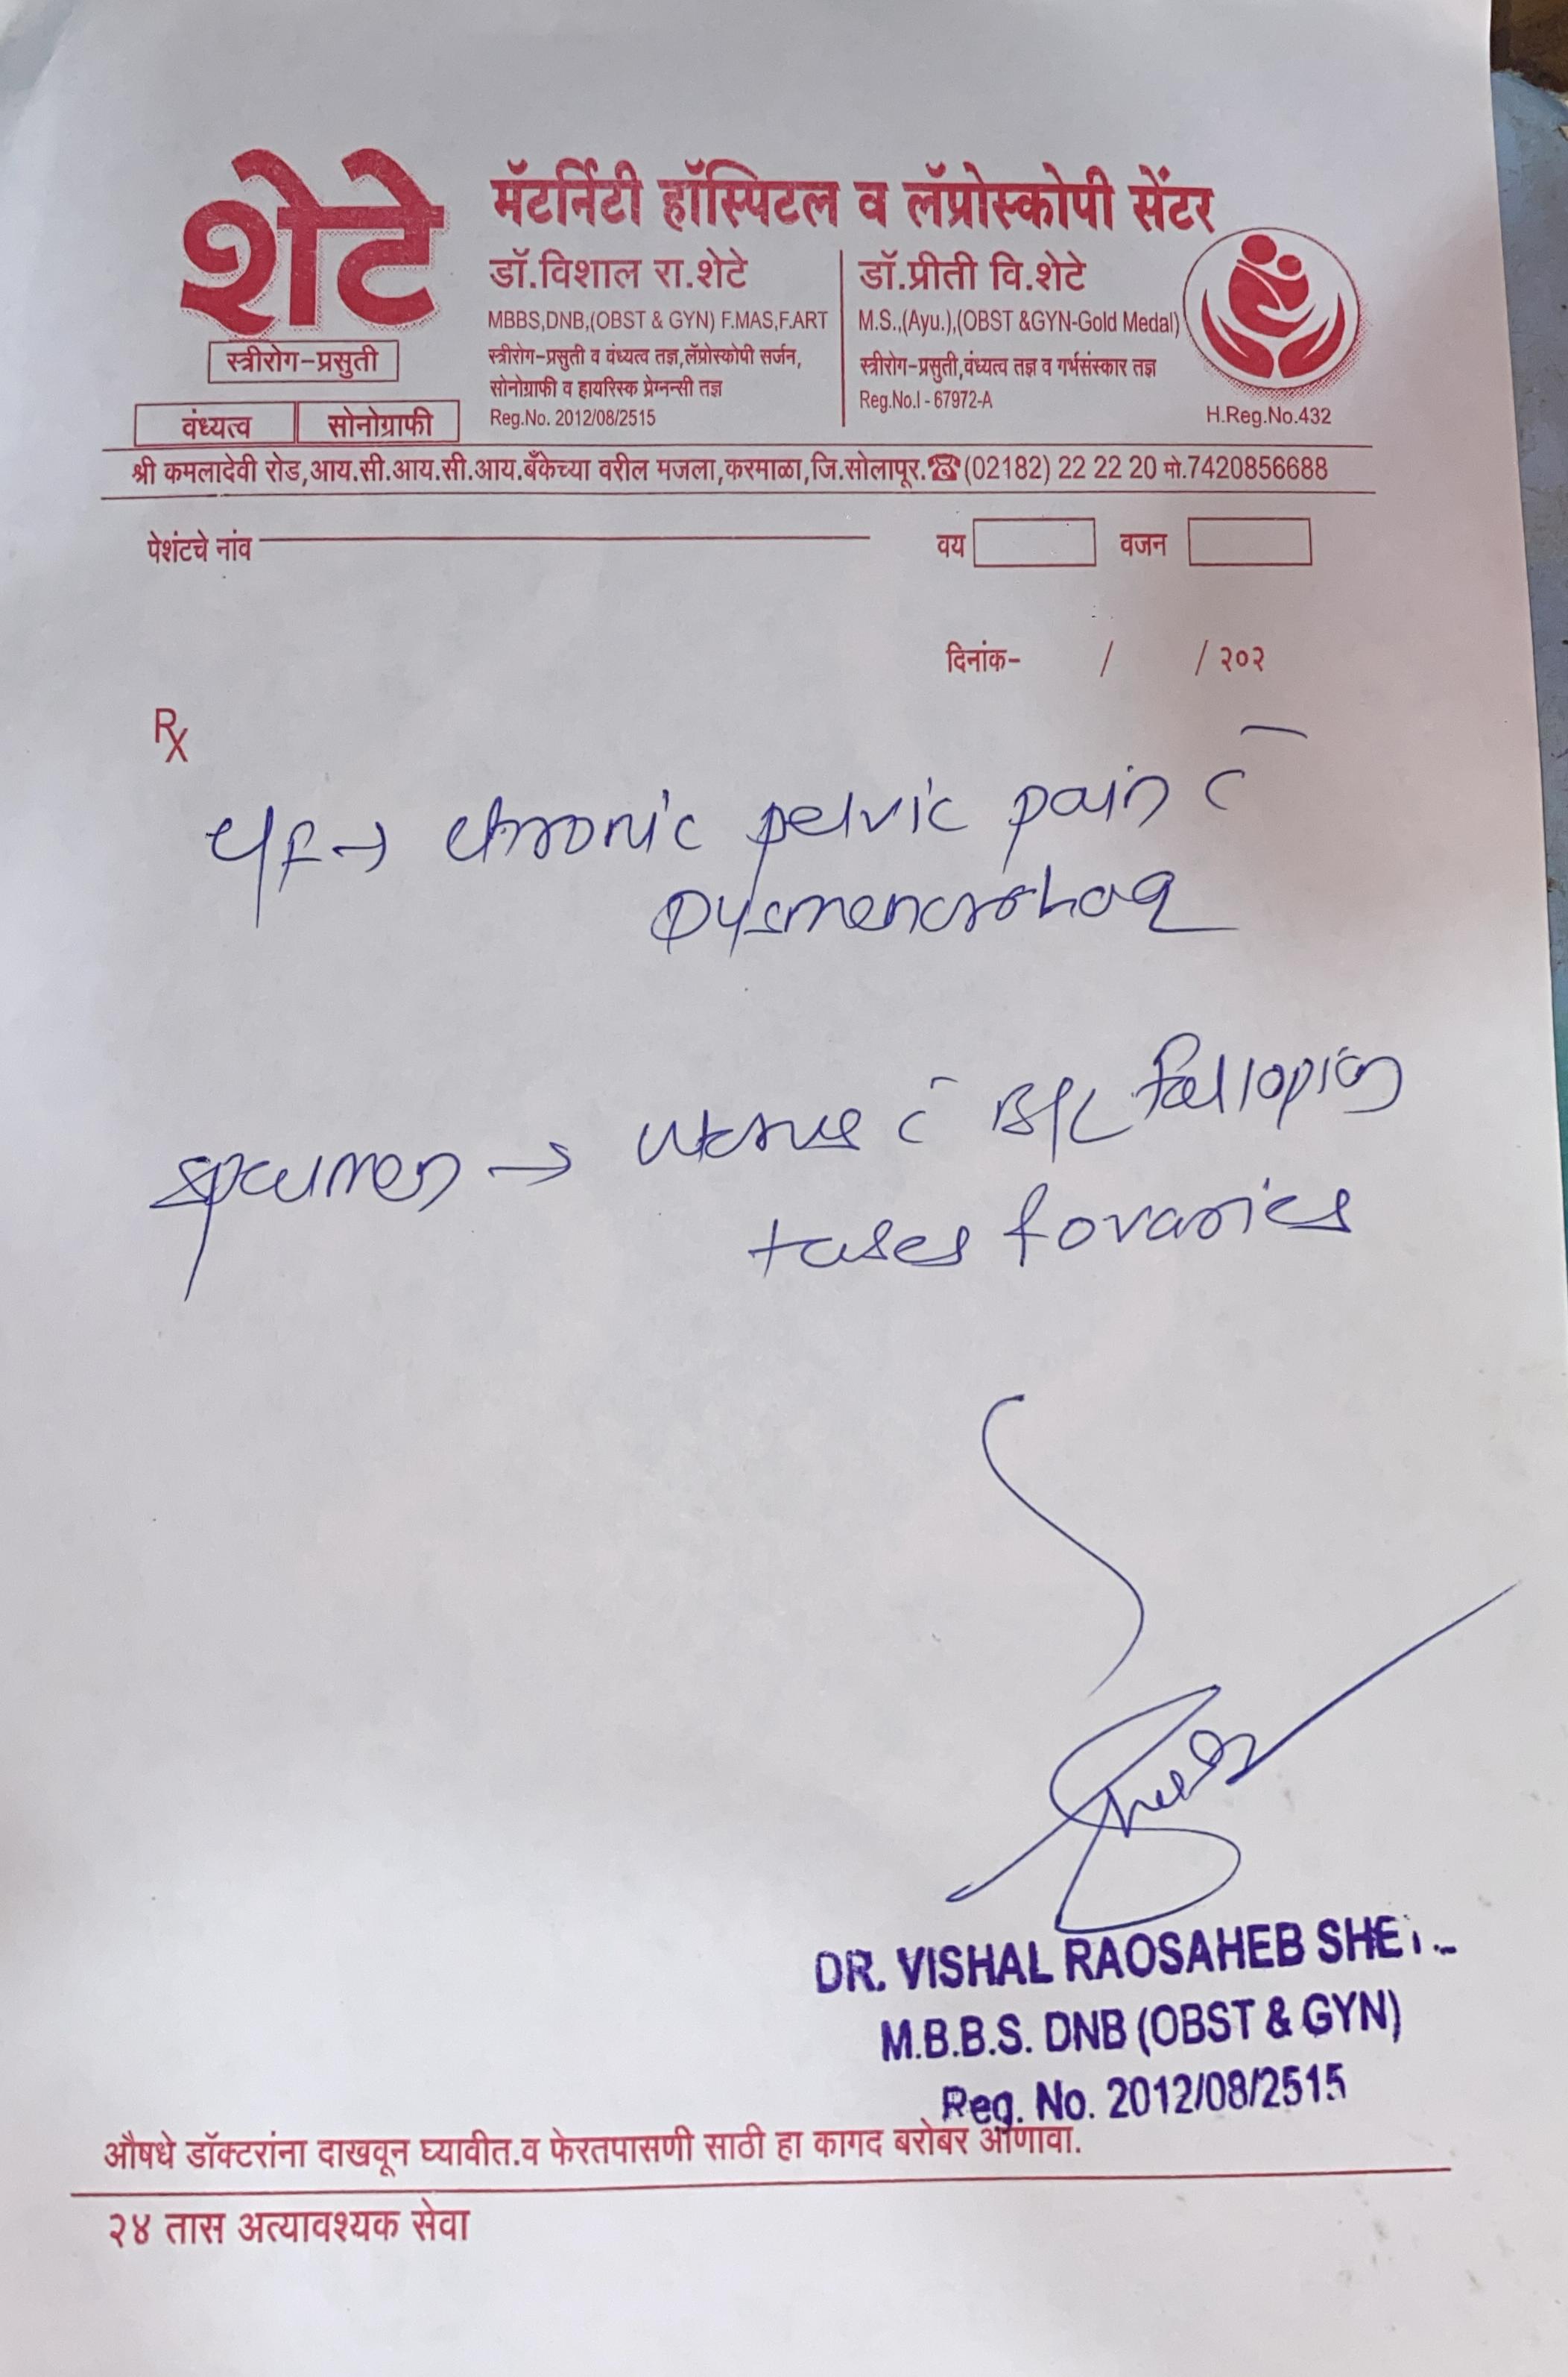 शेटे
मॅटर्निटी हॉस्पिटल व लॅप्रोस्कोपी सेंटर
डॉ.विशाल रा.शेटे
MBBS,DNB,(OBST & GYN) F.MAS,F.ART
स्त्रीरोग-प्रसुती व वंध्यत्व तज्ञ,लॅप्रोस्कोपी सर्जन,
सोनोग्राफी व हायरिस्क प्रेग्नन्सी तज्ञ
Reg.No. 2012/08/2515
डॉ.प्रीती वि.शेटे
M.S.,(Ayu.),(OBST &GYN-Gold Medal)
स्त्रीरोग-प्रसुती,वंध्यत्व तज्ञ व गर्भसंस्कार तज्ञ
Reg.No.I - 67972-A
H.Reg.No.432
स्त्रीरोग-प्रसुती
वंध्यत्व सोनोग्राफी
श्री कमलादेवी रोड,आय.सी.आय.सी.आय.बँकेच्या वरील मजला,करमाळा,जि.सोलापूर.☎(02182) 22 22 20 मो.7420856688
पेशंटचे नांव वय वजन
दिनांक- / / २०२
Rx
→ chronic pelvic pain c̄
Dysmenorrhoea
specimen → uterus c̄ B/L fallopian
tubes & ovaries
DR. VISHAL RAOSAHEB
M.B.B.S. DNB (OBST & GYN)
Reg. No. 2012/08/2515
औषधे डॉक्टरांना दाखवून घ्यावीत.व फेरतपासणी साठी हा कागद बरोबर आणावा.
२४ तास अत्यावश्यक सेवा